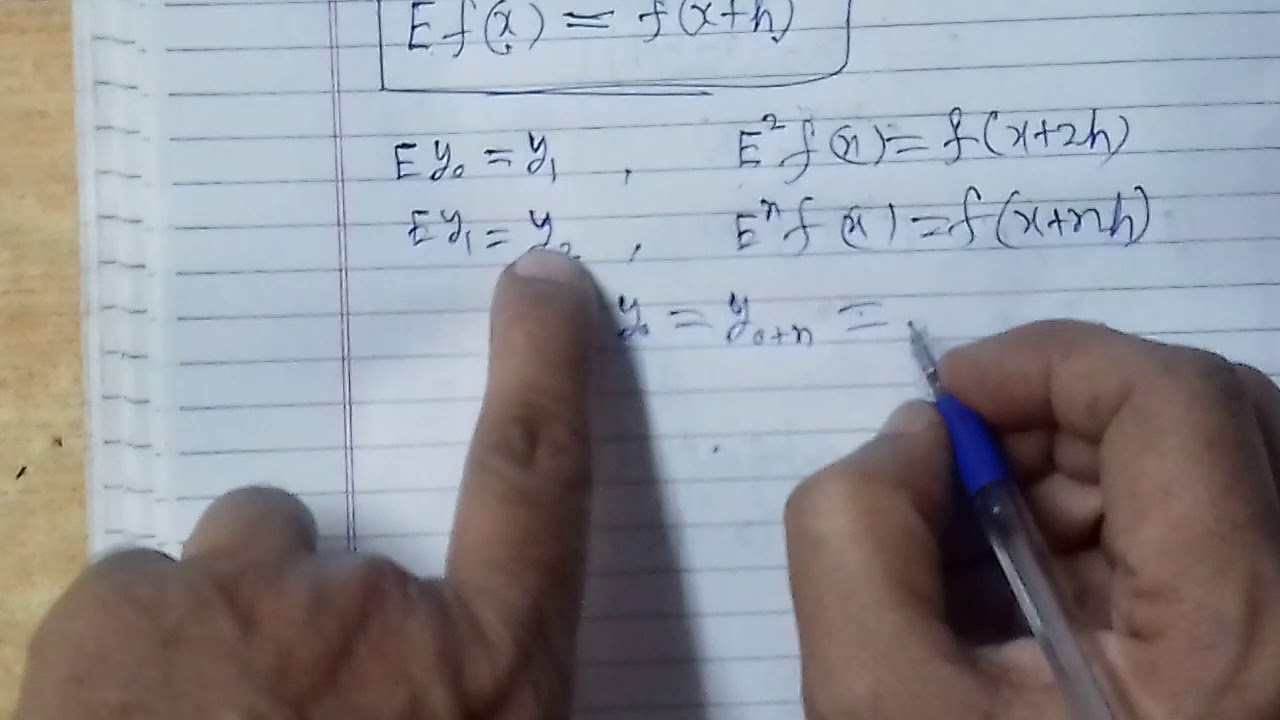 E f(x) = f(x+h)
E y₀ = y₁ , E² f(x) = f(x+2h)
E y₁ = y₂ , Eⁿ f(x) = f(x+nh)
y₀ = y₀₊ₙ =